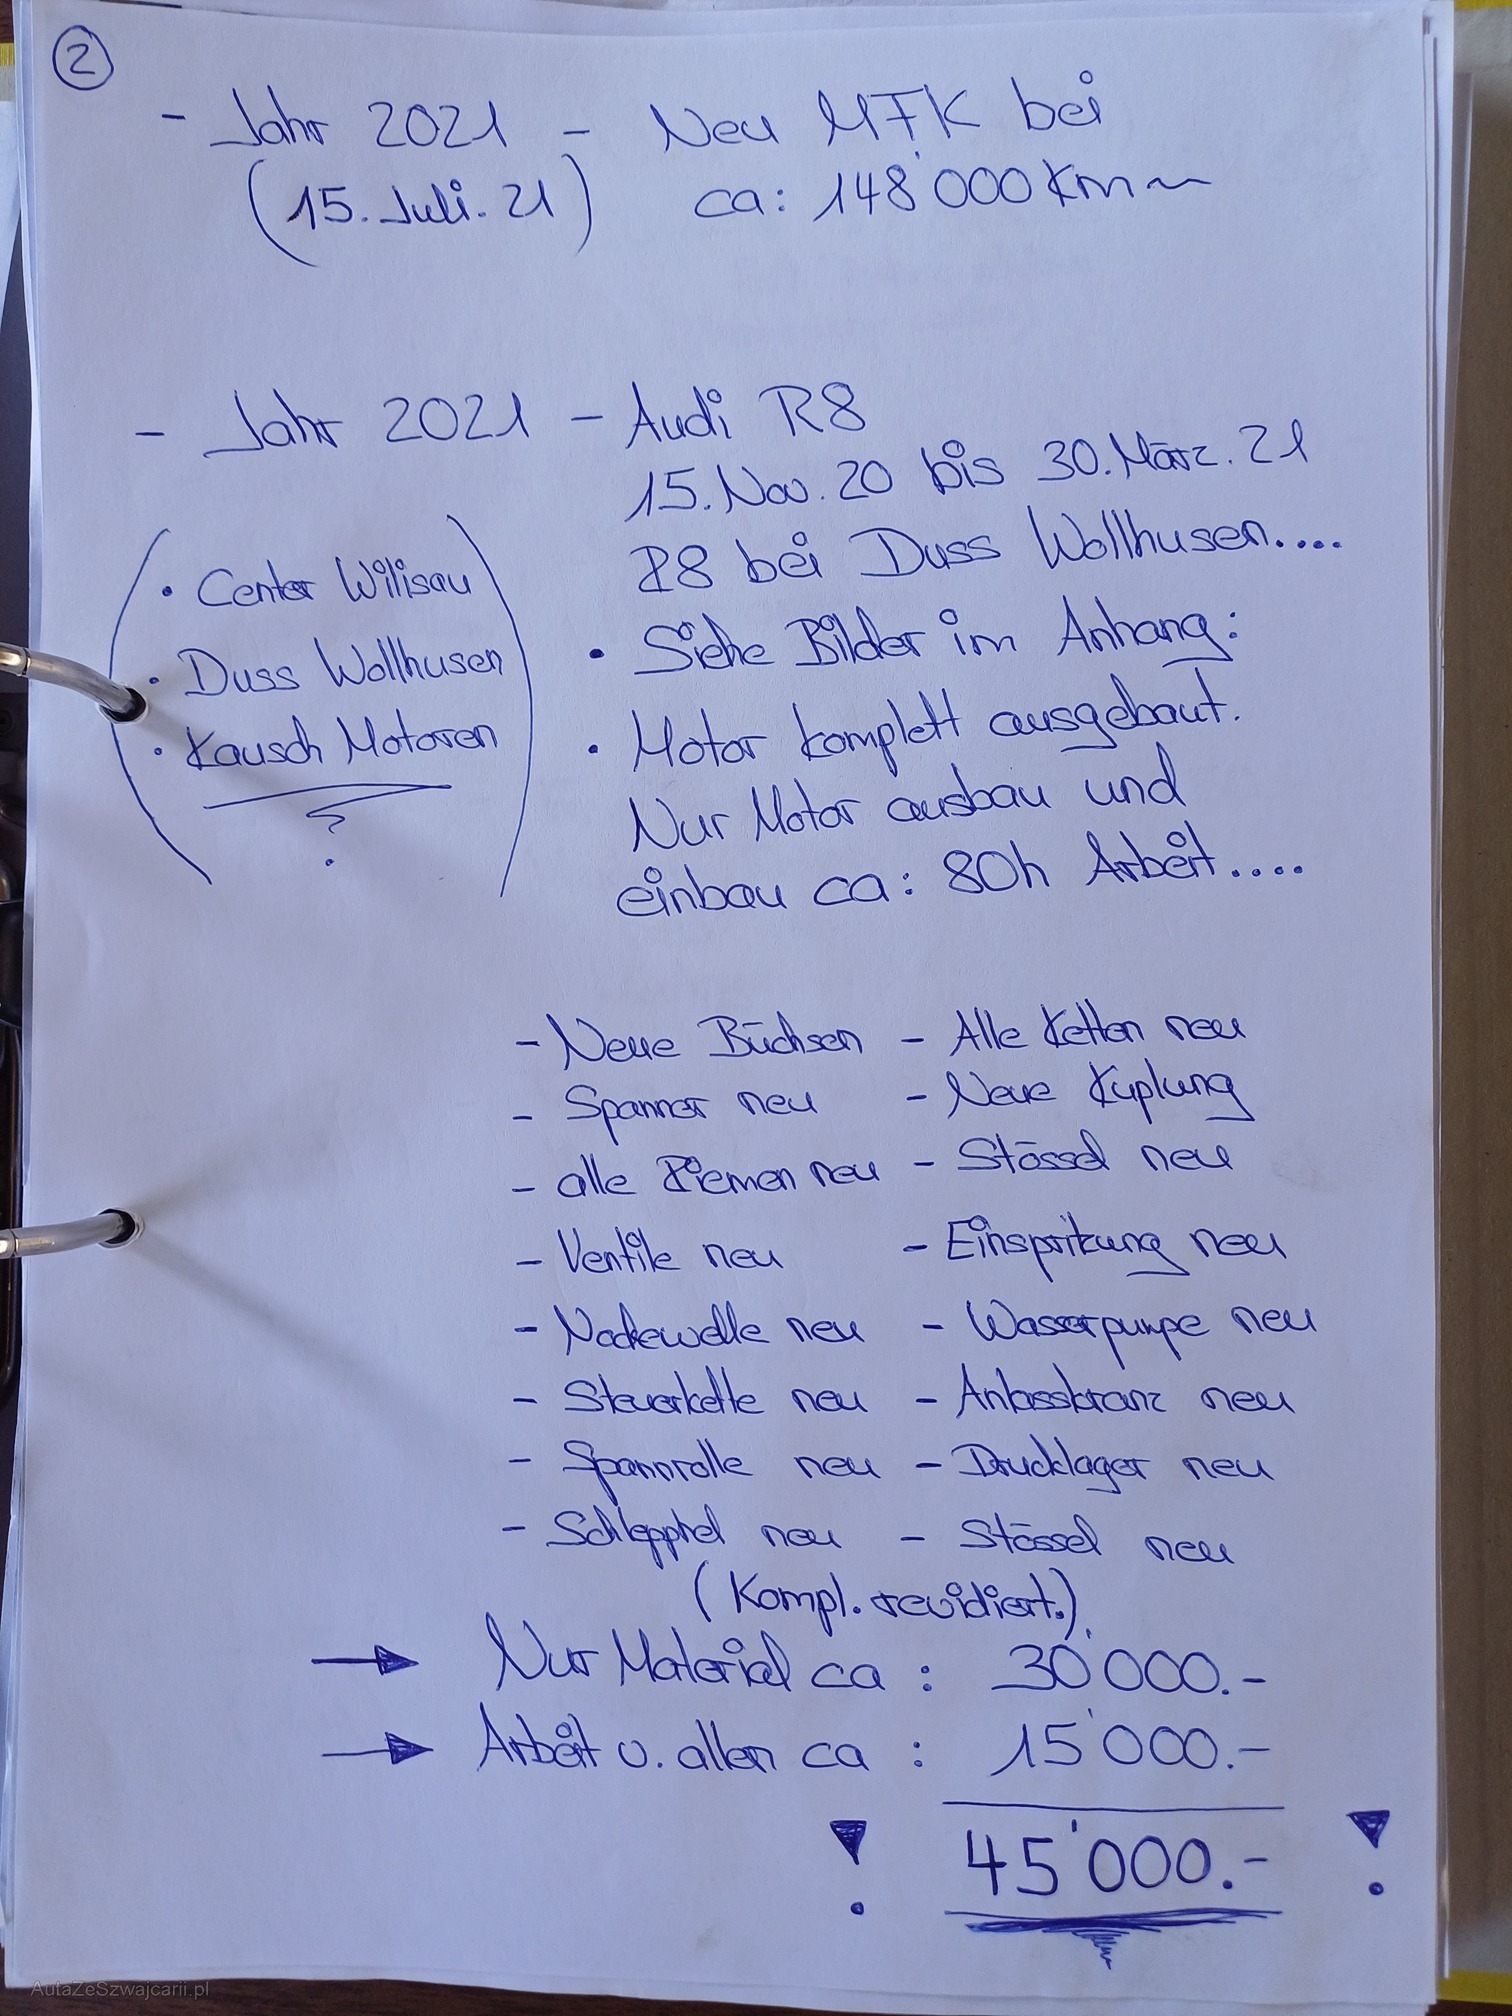 2
- Jahr 2021 - Neu MFK bei
(15. Juli. 21) ca: 148'000 Km ~
- Jahr 2021 - Audi R8
15. Nov. 20 bis 30. März. 21
R8 bei Duss Wollhusen....
• Center Wilisau
• Duss Wollhusen
• Kausch Motoren
• Siehe Bilder im Anhang:
• Motor komplett ausgebaut.
Nur Motor ausbau und
einbau ca: 80h Arbeit....
- Neue Büchsen - Alle Ketten neu
- Spanner neu - Neue Kuplung
- alle Riemen neu - Stössel neu
- Ventile neu - Einspritzung neu
- Nockewelle neu - Wasserpumpe neu
- Steuerkette neu - Anlasskranz neu
- Spannrolle neu - Drucklager neu
- Schlepphel neu - Stössel neu
(Kompl. revidiert.)
→ Nur Material ca : 30'000.-
→ Arbeit v. allen ca : 15'000.-
! 45'000.- !
AutaZeSzwajcarii.pl